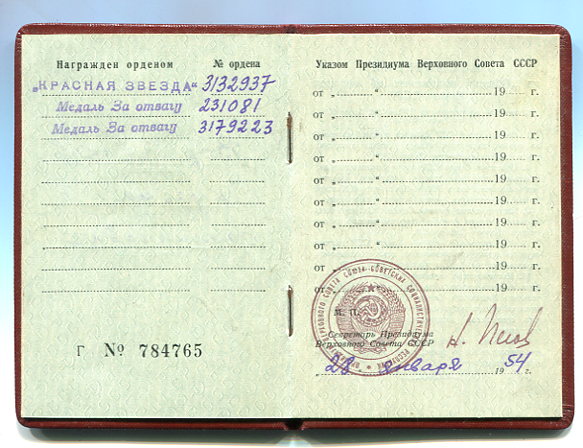 Награжден орденом № ордена
„КРАСНАЯ ЗВЕЗДА“ 3132937
Медаль За отвагу 231081
Медаль За отвагу 3179223
Г № 784765
Указом Президиума Верховного Совета СССР
от „ “ 19 г.
от „ “ 19 г.
от „ “ 19 г.
от „ “ 19 г.
от „ “ 19 г.
от „ “ 19 г.
от „ “ 19 г.
от „ “ 19 г.
от „ “ 19 г.
от „ “ 19 г.
М. П.
Секретарь Президиума
Верховного Совета СССР
28 января 1954 г.